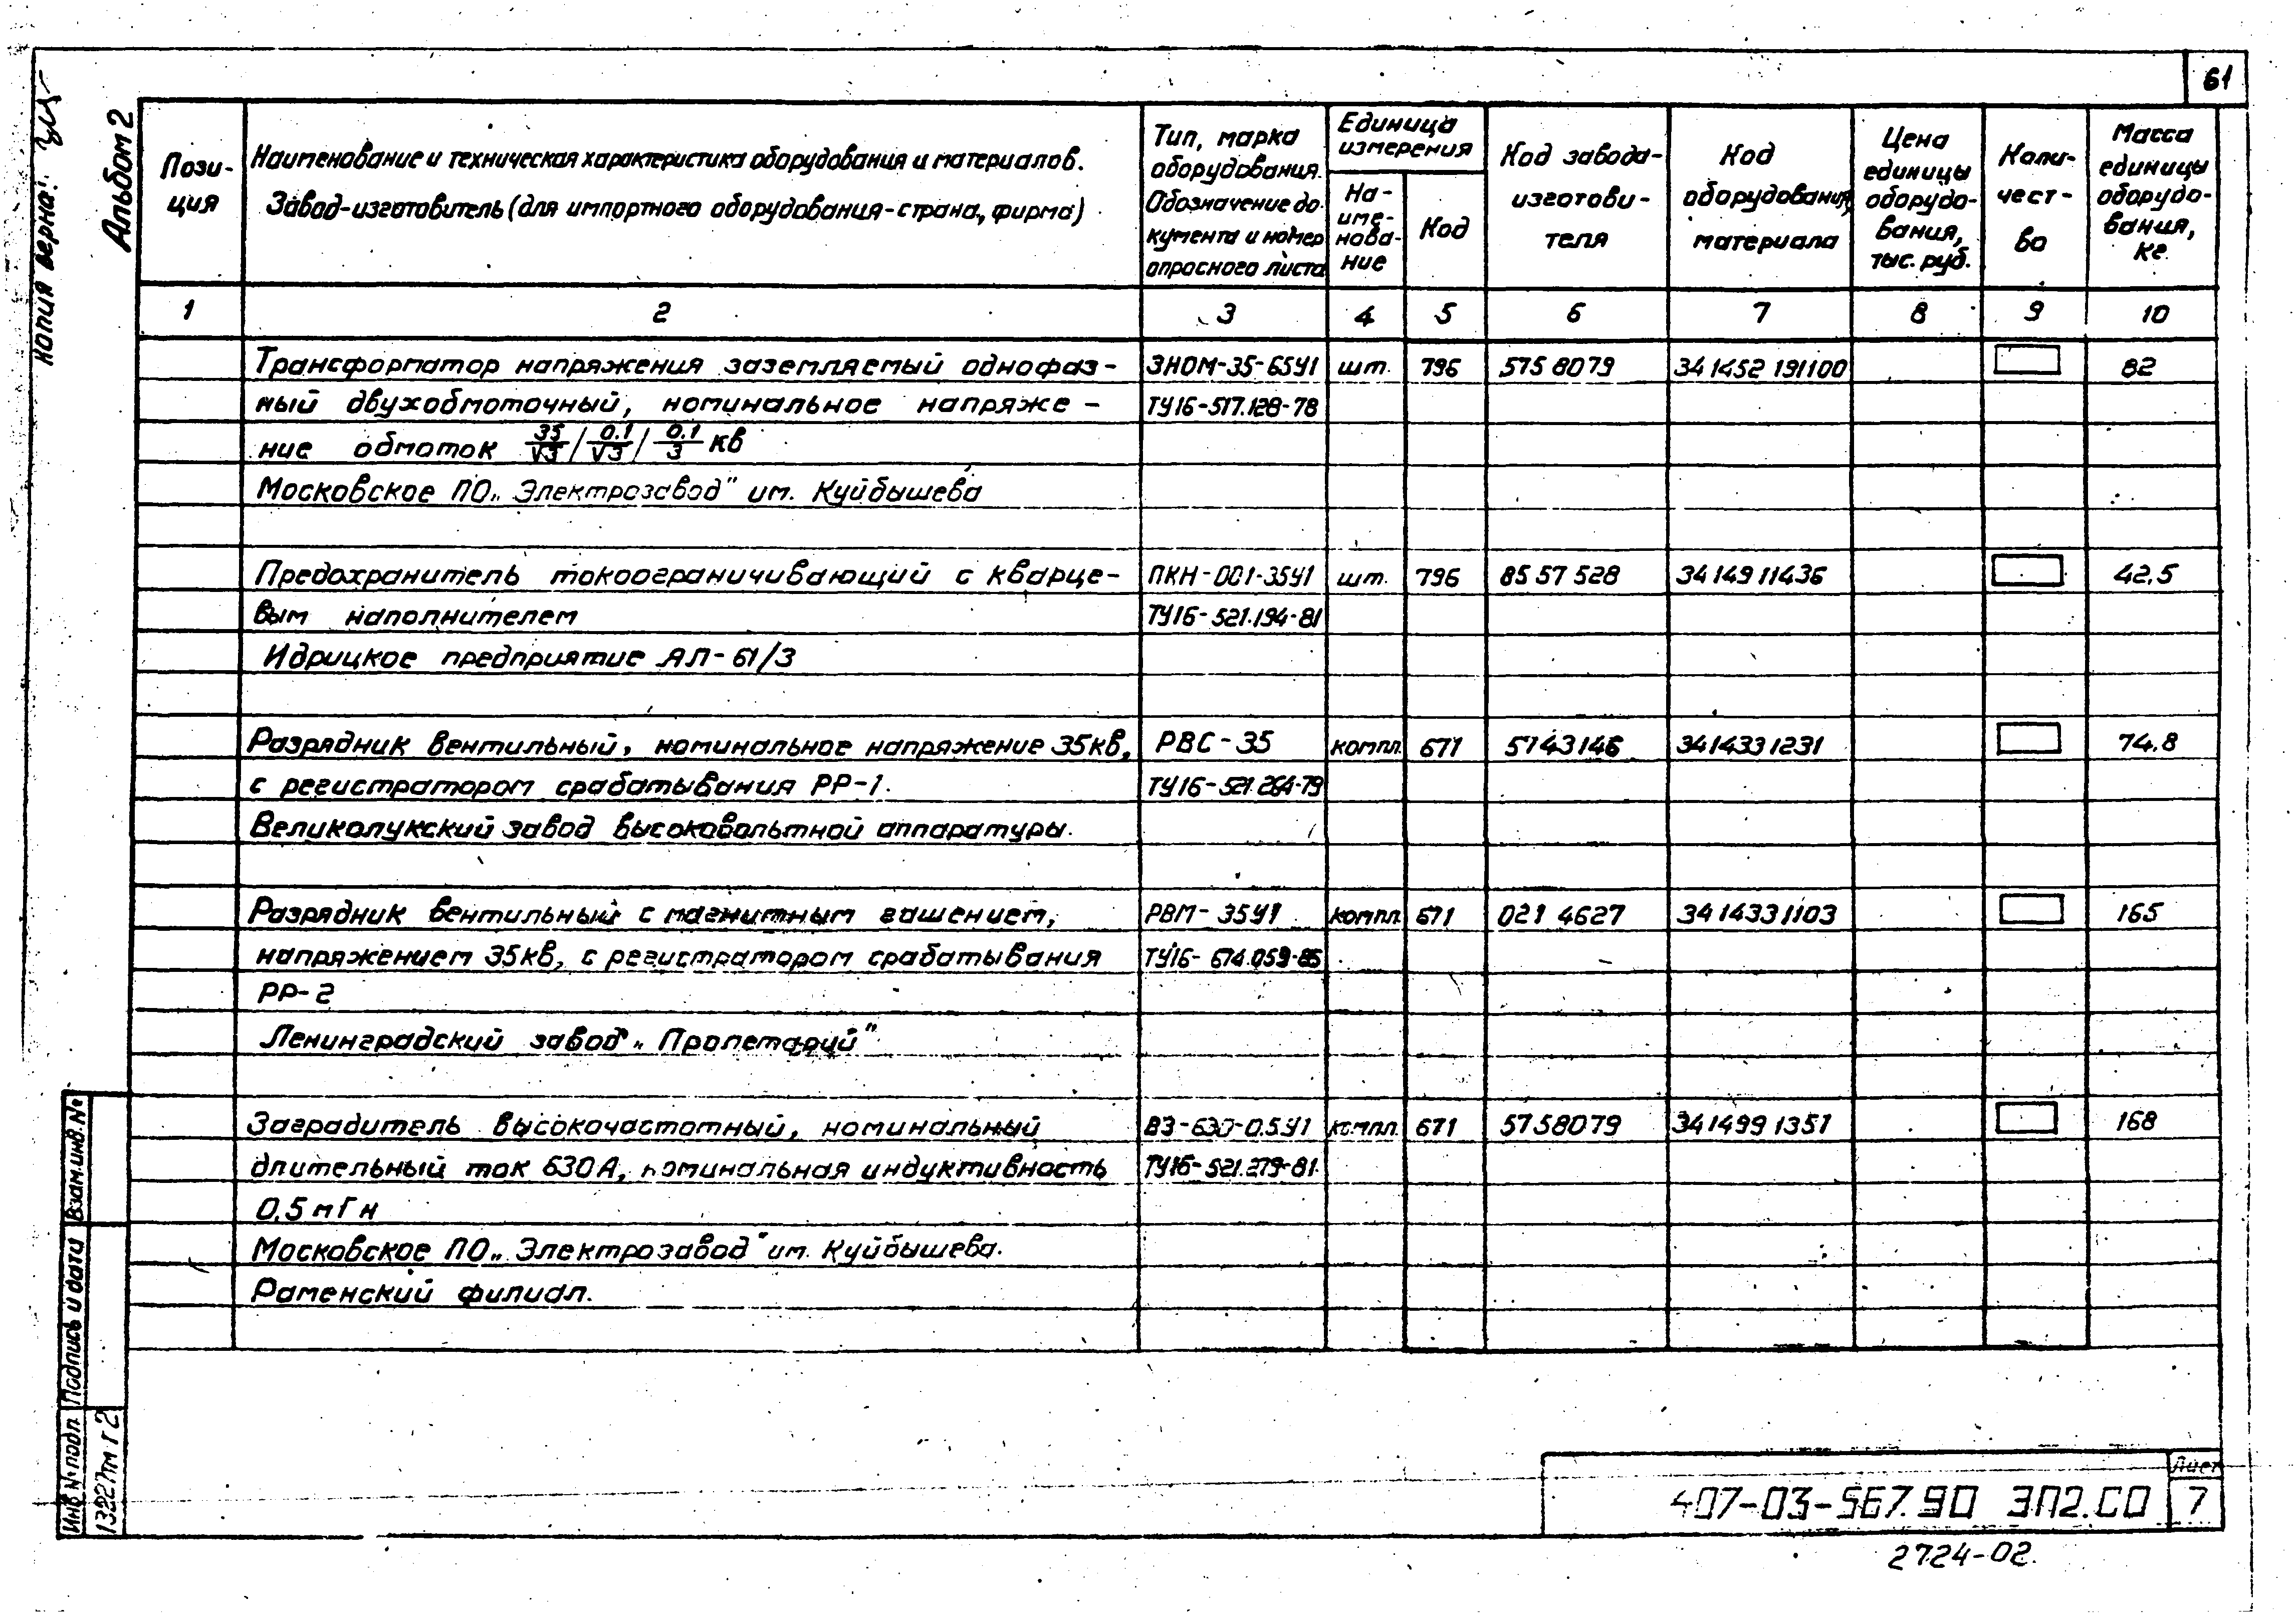 61
Копия верна:
Альбом 2
Пози-
ция
Наименование и техническая характеристика оборудования и материалов.
Завод-изготовитель (для импортного оборудования-страна, фирма)
Тип, марка
оборудования.
Обозначение до-
кумента и номер
опросного листа
Единица
измерения
На-
име-
нова-
ние
Код
Код завода-
изготови-
теля
Код
оборудования,
материала
Цена
единицы
оборудо-
вания,
тыс. руб.
Коли-
чест-
во
Масса
единицы
оборудо-
вания,
кг
1 2 3 4 5 6 7 8 9 10
Трансформатор напряжения заземляемый однофаз- ЗНОМ-35-65У1 шт. 796 575 8079 34 1452 191100 82
ный двухобмоточный, номинальное напряже- ТУ16-517.128-78
ние обмоток 35/√3 / 0.1/√3 / 0.1/3 кв
Московское ПО „Электрозавод" им. Куйбышева
Предохранитель токоограничивающий с кварце- ПКН-001-35У1 шт. 796 85 57 528 34 149 11436 42,5
вым наполнителем ТУ16-521.194-81
Идрицкое предприятие ЯЛ-61/3
Разрядник вентильный, номинальное напряжение 35кв, РВС-35 компл. 671 5743146 3414331231 74.8
с регистратором срабатывания РР-1. ТУ16-521.264-79
Великолукский завод высоковольтной аппаратуры.
Разрядник вентильный с магнитным гашением, РВМ-35У1 компл. 671 021 4627 3414331103 165
напряжением 35кв, с регистратором срабатывания ТУ16-674.059-85
РР-2
Ленинградский завод „Пролетарий"
Заградитель высокочастотный, номинальный ВЗ-630-0.5У1 компл. 671 5758079 341499 1351 168
длительный ток 630А, номинальная индуктивность ТУ16-521.279-81.
0,5 мГн
Московское ПО „Электрозавод" им. Куйбышева.
Раменский филиал.
Взам.инв.№
Подпись и дата
Инв.№ подл.
13227тм-т2
407-03-567.90 ЭП2.СО
Лист
7
2724-02.